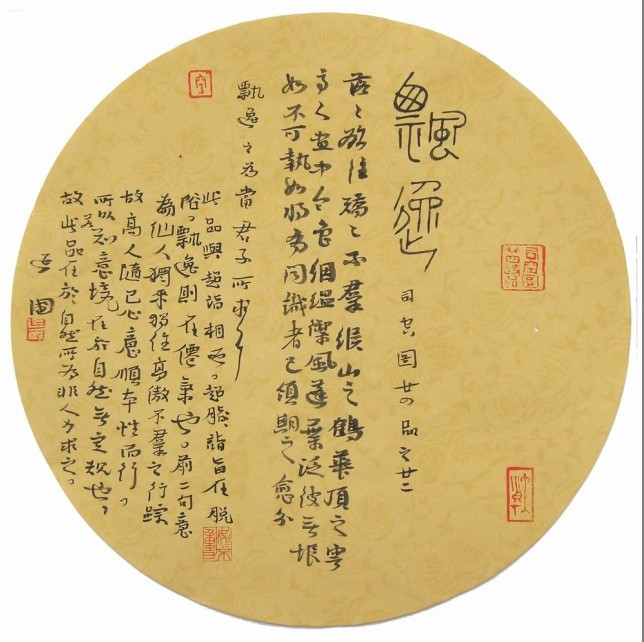 飄逸
司空圖廿四品之廿二
落〻欲往矯〻不羣緱山之鶴華頂之雲
高人畫中令色絪縕禦風蓬葉泛彼無垠
如不可執如將有聞識者已領期之愈分
飄逸之為當君子所求
此品與超詣相近。超脫詣旨在脫
俗。飄逸則在僊氣也。前二句意
為仙人獨來獨往高傲不羣之行蹤
故高人隨己心意順本性而行。
所以意境在於自然無定規也。
故此品在於自然所為非人力求之。
司空圖廿四詩品